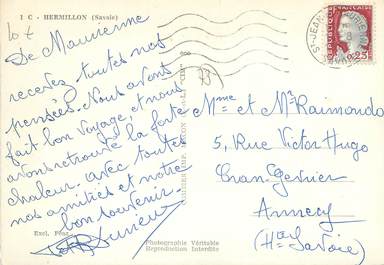 1 C - HERMILLON (Savoie)
De Maurienne
recevez toutes nos
pensées. Nous avons
fait bon voyage, et nous
avons retrouvé la forte
chaleur. avec toutes
nos amitiés et notre
bon souvenir.
Excl.
Photographie Véritable
Reproduction Interdite
RÉPUBLIQUE FRANÇAISE
0,25
ST-JEAN
Mme et Mr Raimondo
5, Rue Victor Hugo
Cran Gevrier
Annecy
(Hte Savoie)